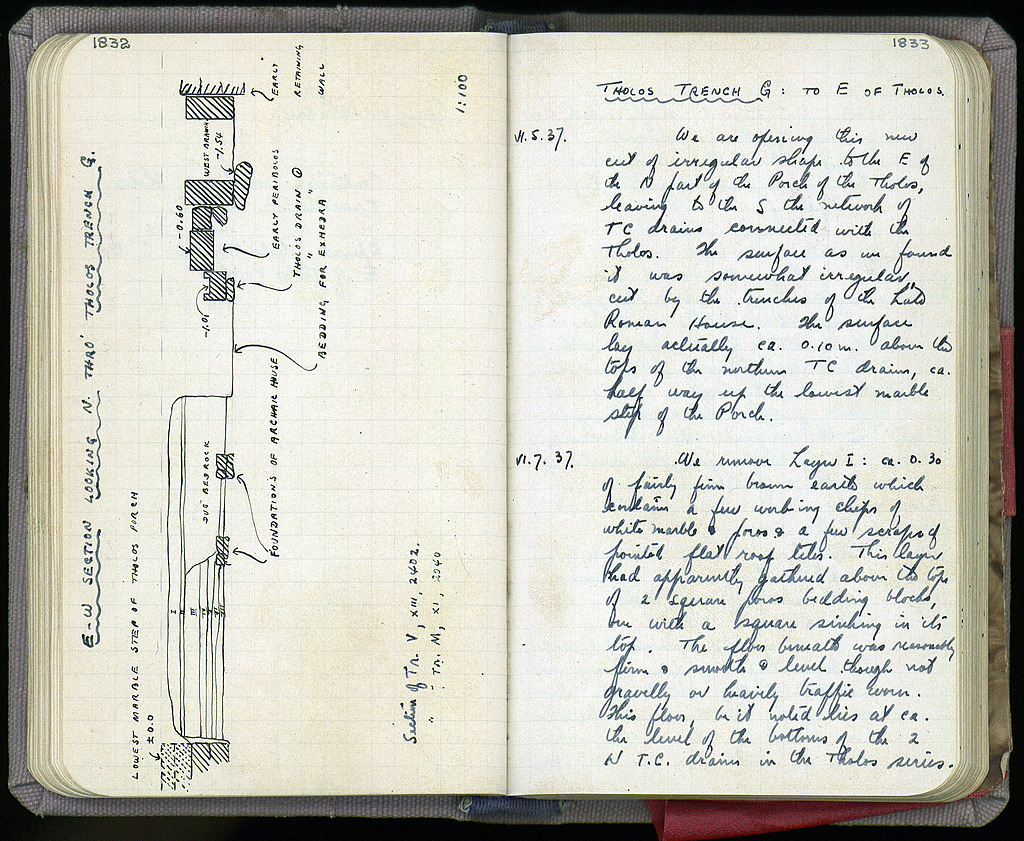 1832
E-W SECTION LOOKING N. THRO' THOLOS TRENCH G.
LOWEST MARBLE STEP OF THOLOS PORCH
±0.0
I
II
III
IV
V
VI
VII
DUG BEDROCK
FOUNDATIONS OF ARCHAIC HOUSE
-1.01
-0.60
WEST DRAIN
-1.54
BEDDING FOR EXHEDRA
THOLOS DRAIN
"
"
EARLY PERIBOLOS
EARLY
RETAINING
WALL
1:100
Section of Tr. V, XIII, 2402.
" Tr. M, XI, 2040
1833
THOLOS TRENCH G: TO E OF THOLOS.
VI.5.37. We are opening this new
cut of irregular shape to the E of
the N part of the Porch of the Tholos,
leaving to the S the network of
TC drains connected with the
Tholos. The surface as we found
it was somewhat irregular,
cut by the trenches of the Late
Roman House. The surface
lay actually ca. 0.10 m. above the
tops of the northern TC drains, ca.
half way up the lowest marble
step of the Porch.
VI.7.37. We remove Layer I: ca. 0.30
of fairly firm brown earth which
contains a few working chips of
white marble & poros & a few scraps of
pointed flat roof tiles. This layer
had apparently gathered above the tops
of 2 square poros bedding blocks,
one with a square sinking in its
top. The floor beneath was reasonably
firm & smooth & level though not
gravelly or heavily traffic worn.
This floor, be it noted lies at ca.
the level of the bottoms of the 2
N T.C. drains in the Tholos series.